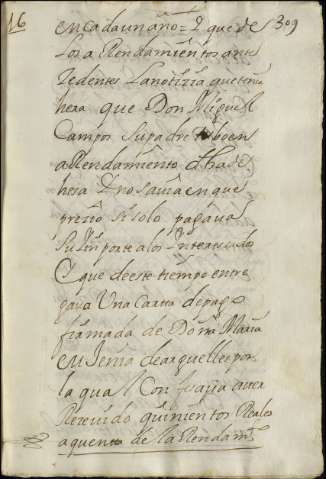 16
309
en cada un año = Y que de
los a Rendamientos ante
zedentes La notizia que tenia
hera que Don Miguel
Campos su padre tubo en
a Rendamiento dha de
hesa Y no savia en que
prezio si solo pagava
su Ynporte a los Ynteresados
Y que de este tiempo entre
gava Una Carta de pago
firmada de Doña Maria
eujenia de arguelles por
la qual Constava aver
Rezevido quinientos Reales
a quenta de la Rendamto